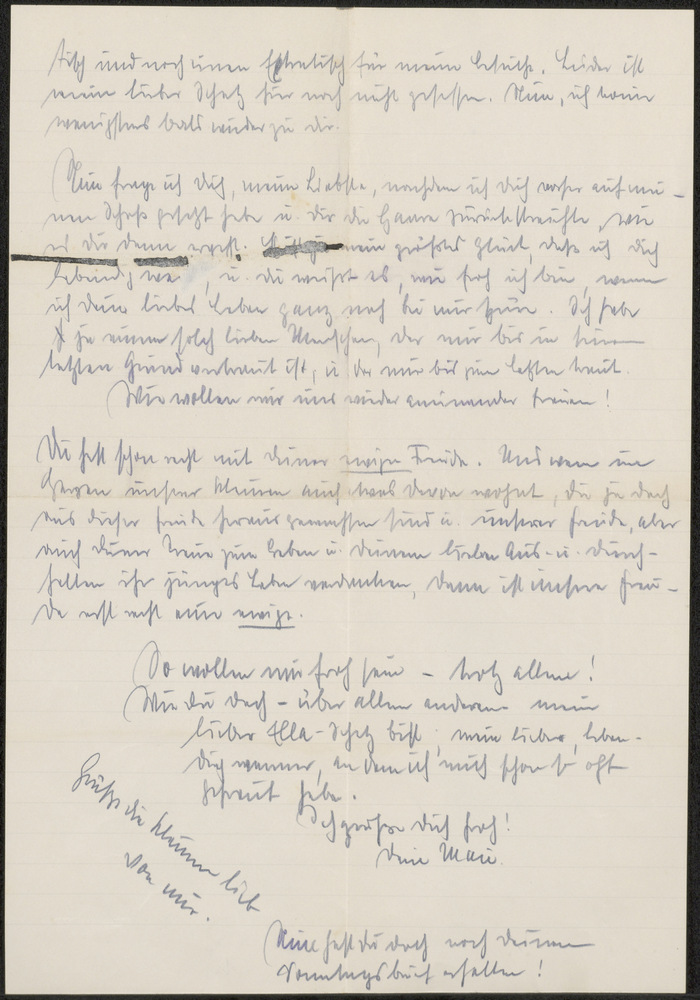 Tisch und noch einen Extratisch für meine Besuche. Leider ist
mein lieber Schatz hier noch nicht gesessen. Nun, ich komme
wenigstens bald wieder zu dir.
Nun frage ich Dich, meine Liebste, nachdem ich Dich vorher auf mei-
nen Schoß gesetzt habe u. dir die Haare zurückstreichle, wie
es dir denn ergeht. mein größtes Glück, daß ich dich
lebendig, u. du weißt es, wie froh ich bin, wenn
ich dein liebes Leben ganz nah bei mir spüre. Ich habe
ja einen solch lieben Menschen, der mir bis in seinen
letzten Grund vertraut ist, u. der mir bis zum letzten traut.
Wie wollen wir uns wieder aneinander freuen!
Du hast schon recht mit deiner ewigen Freude. Und wenn im
Herzen unserer kleinen auch was davon wohnt, die ja doch
aus dieser Freude herausgewachsen sind u. unserer Freude, aber
auch deiner Treue zum Leben u. deinem lieben Aus- u. Durch-
halten ihr junges Leben verdanken, dann ist unsere Freu-
de erst recht eine ewige.
So wollen wir froh sein – trotz allem!
Wie du doch – über allem anderem mein
lieber Ella-Schatz bist, mein lieber, leben-
diger, an dem ich mich schon so oft
gefreut habe.
Ich grüße Dich froh!
Dein
Grüße die kleinen lieb
von mir.
Nun hast du doch noch deinen
Sonntagsbrief erhalten!